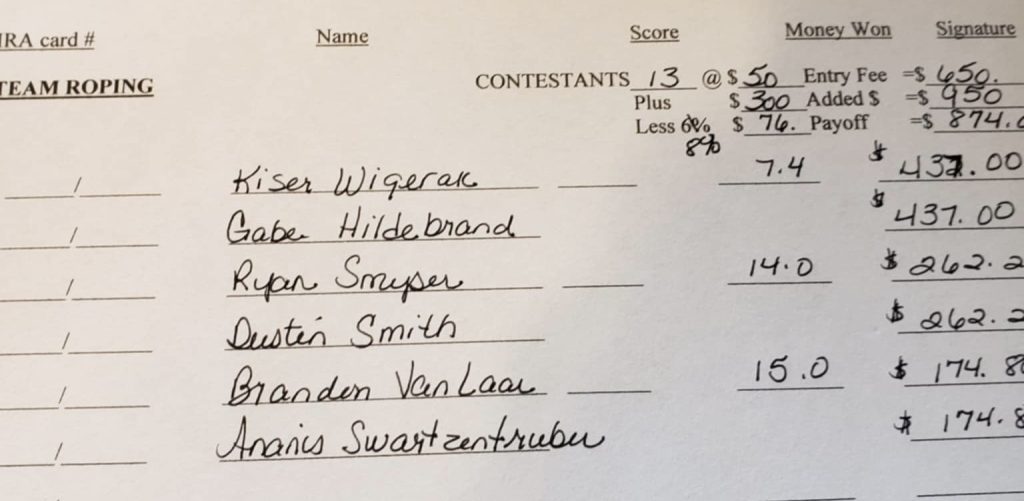 IRA card # Name Score Money Won Signature
TEAM ROPING CONTESTANTS 13 @ $ 50 Entry Fee =$ 650.
Plus $ 300 Added $ =$ 950
Less 6% $ 76. Payoff =$ 874.0
8%
/ Kiser Wigerak 7.4 $ 437.00
/ Gabe Hildebrand $ 437.00
/ Ryan Smyser 14.0 $ 262.2
/ Dustin Smith $ 262.2
/ Branden VanLaar 15.0 $ 174.80
/ Ananis Swartzentruber $ 174.8